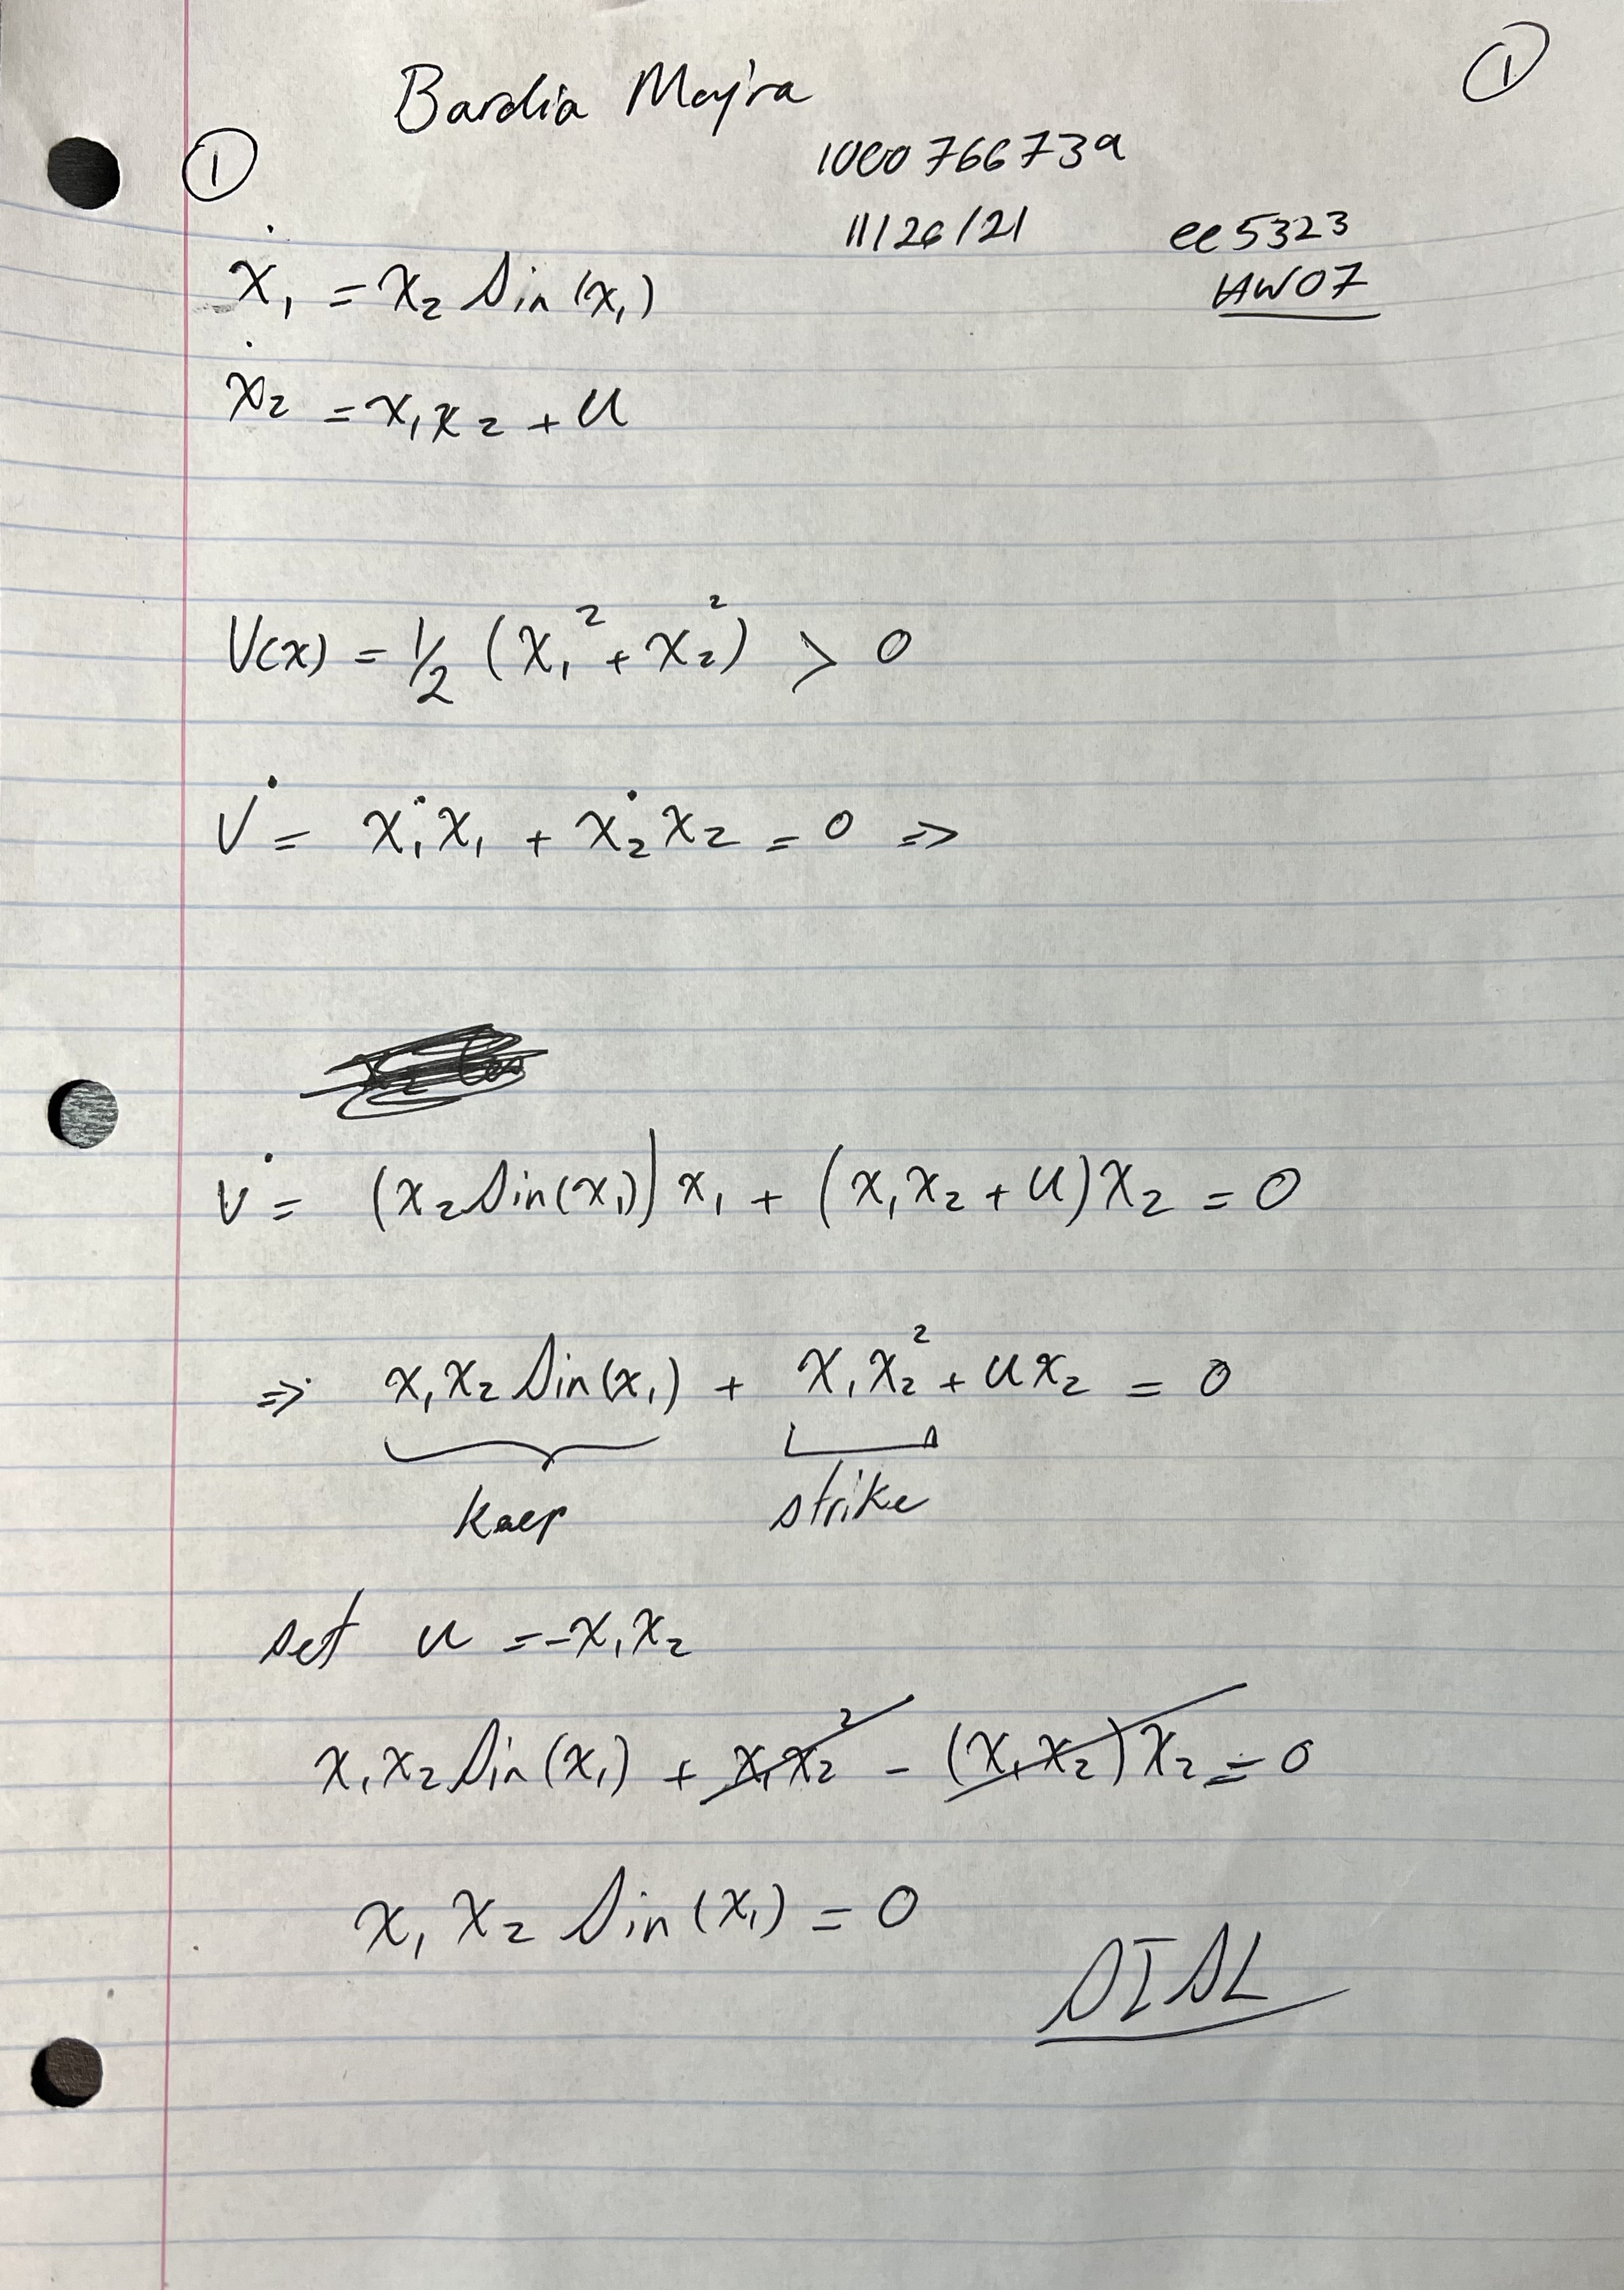 Bardia Mojra
①
①
1000766739
11/26/21 ee5323
HW07
ẋ₁ = x₂ sin(x₁)
ẋ₂ = x₁x₂ + u
V(x) = 1/2 (x₁² + x₂²) > 0
V̇ = ẋ₁x₁ + ẋ₂x₂ = 0 ⇒
V̇ = (x₂ sin(x₁)) x₁ + (x₁x₂ + u)x₂ = 0
⇒ x₁x₂ sin(x₁) + x₁x₂² + ux₂ = 0
keep strike
set u = -x₁x₂
x₁x₂ sin(x₁) + x₁x₂² - (x₁x₂)x₂ = 0
x₁x₂ sin(x₁) = 0
SISL